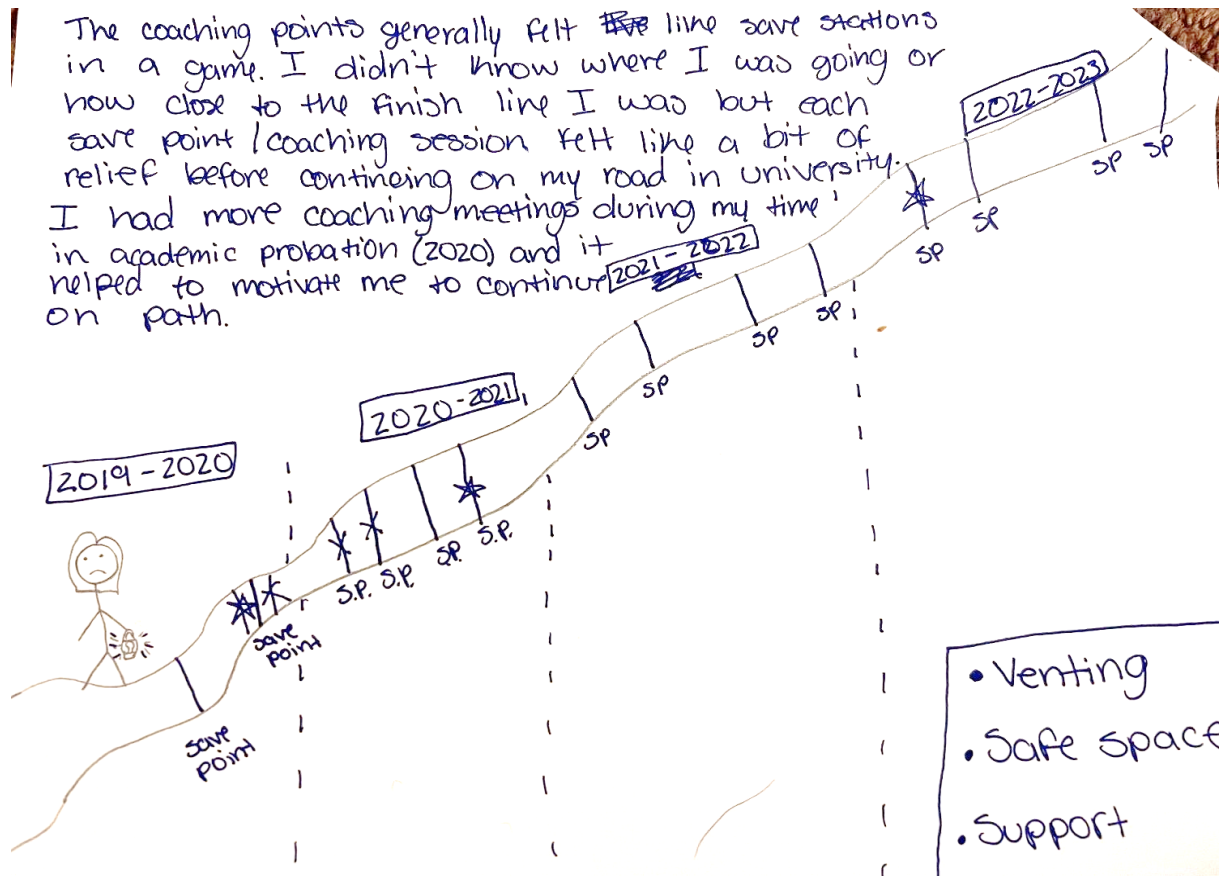 The coaching points generally felt like save stations
in a game. I didn't know where I was going or
how close to the finish line I was but each
save point / coaching session felt like a bit of
relief before contineing on my road in university.
I had more coaching meetings during my time
in academic probation (2020) and it
helped to motivate me to continue
on path.
2022-2023
SP
SP
SP
SP
2021-2022
SP
SP
SP
SP
2020-2021
S.P.
SP.
S.P.
S.P.
2019-2020
save
point
save
point
• Venting
• Safe space
• Support